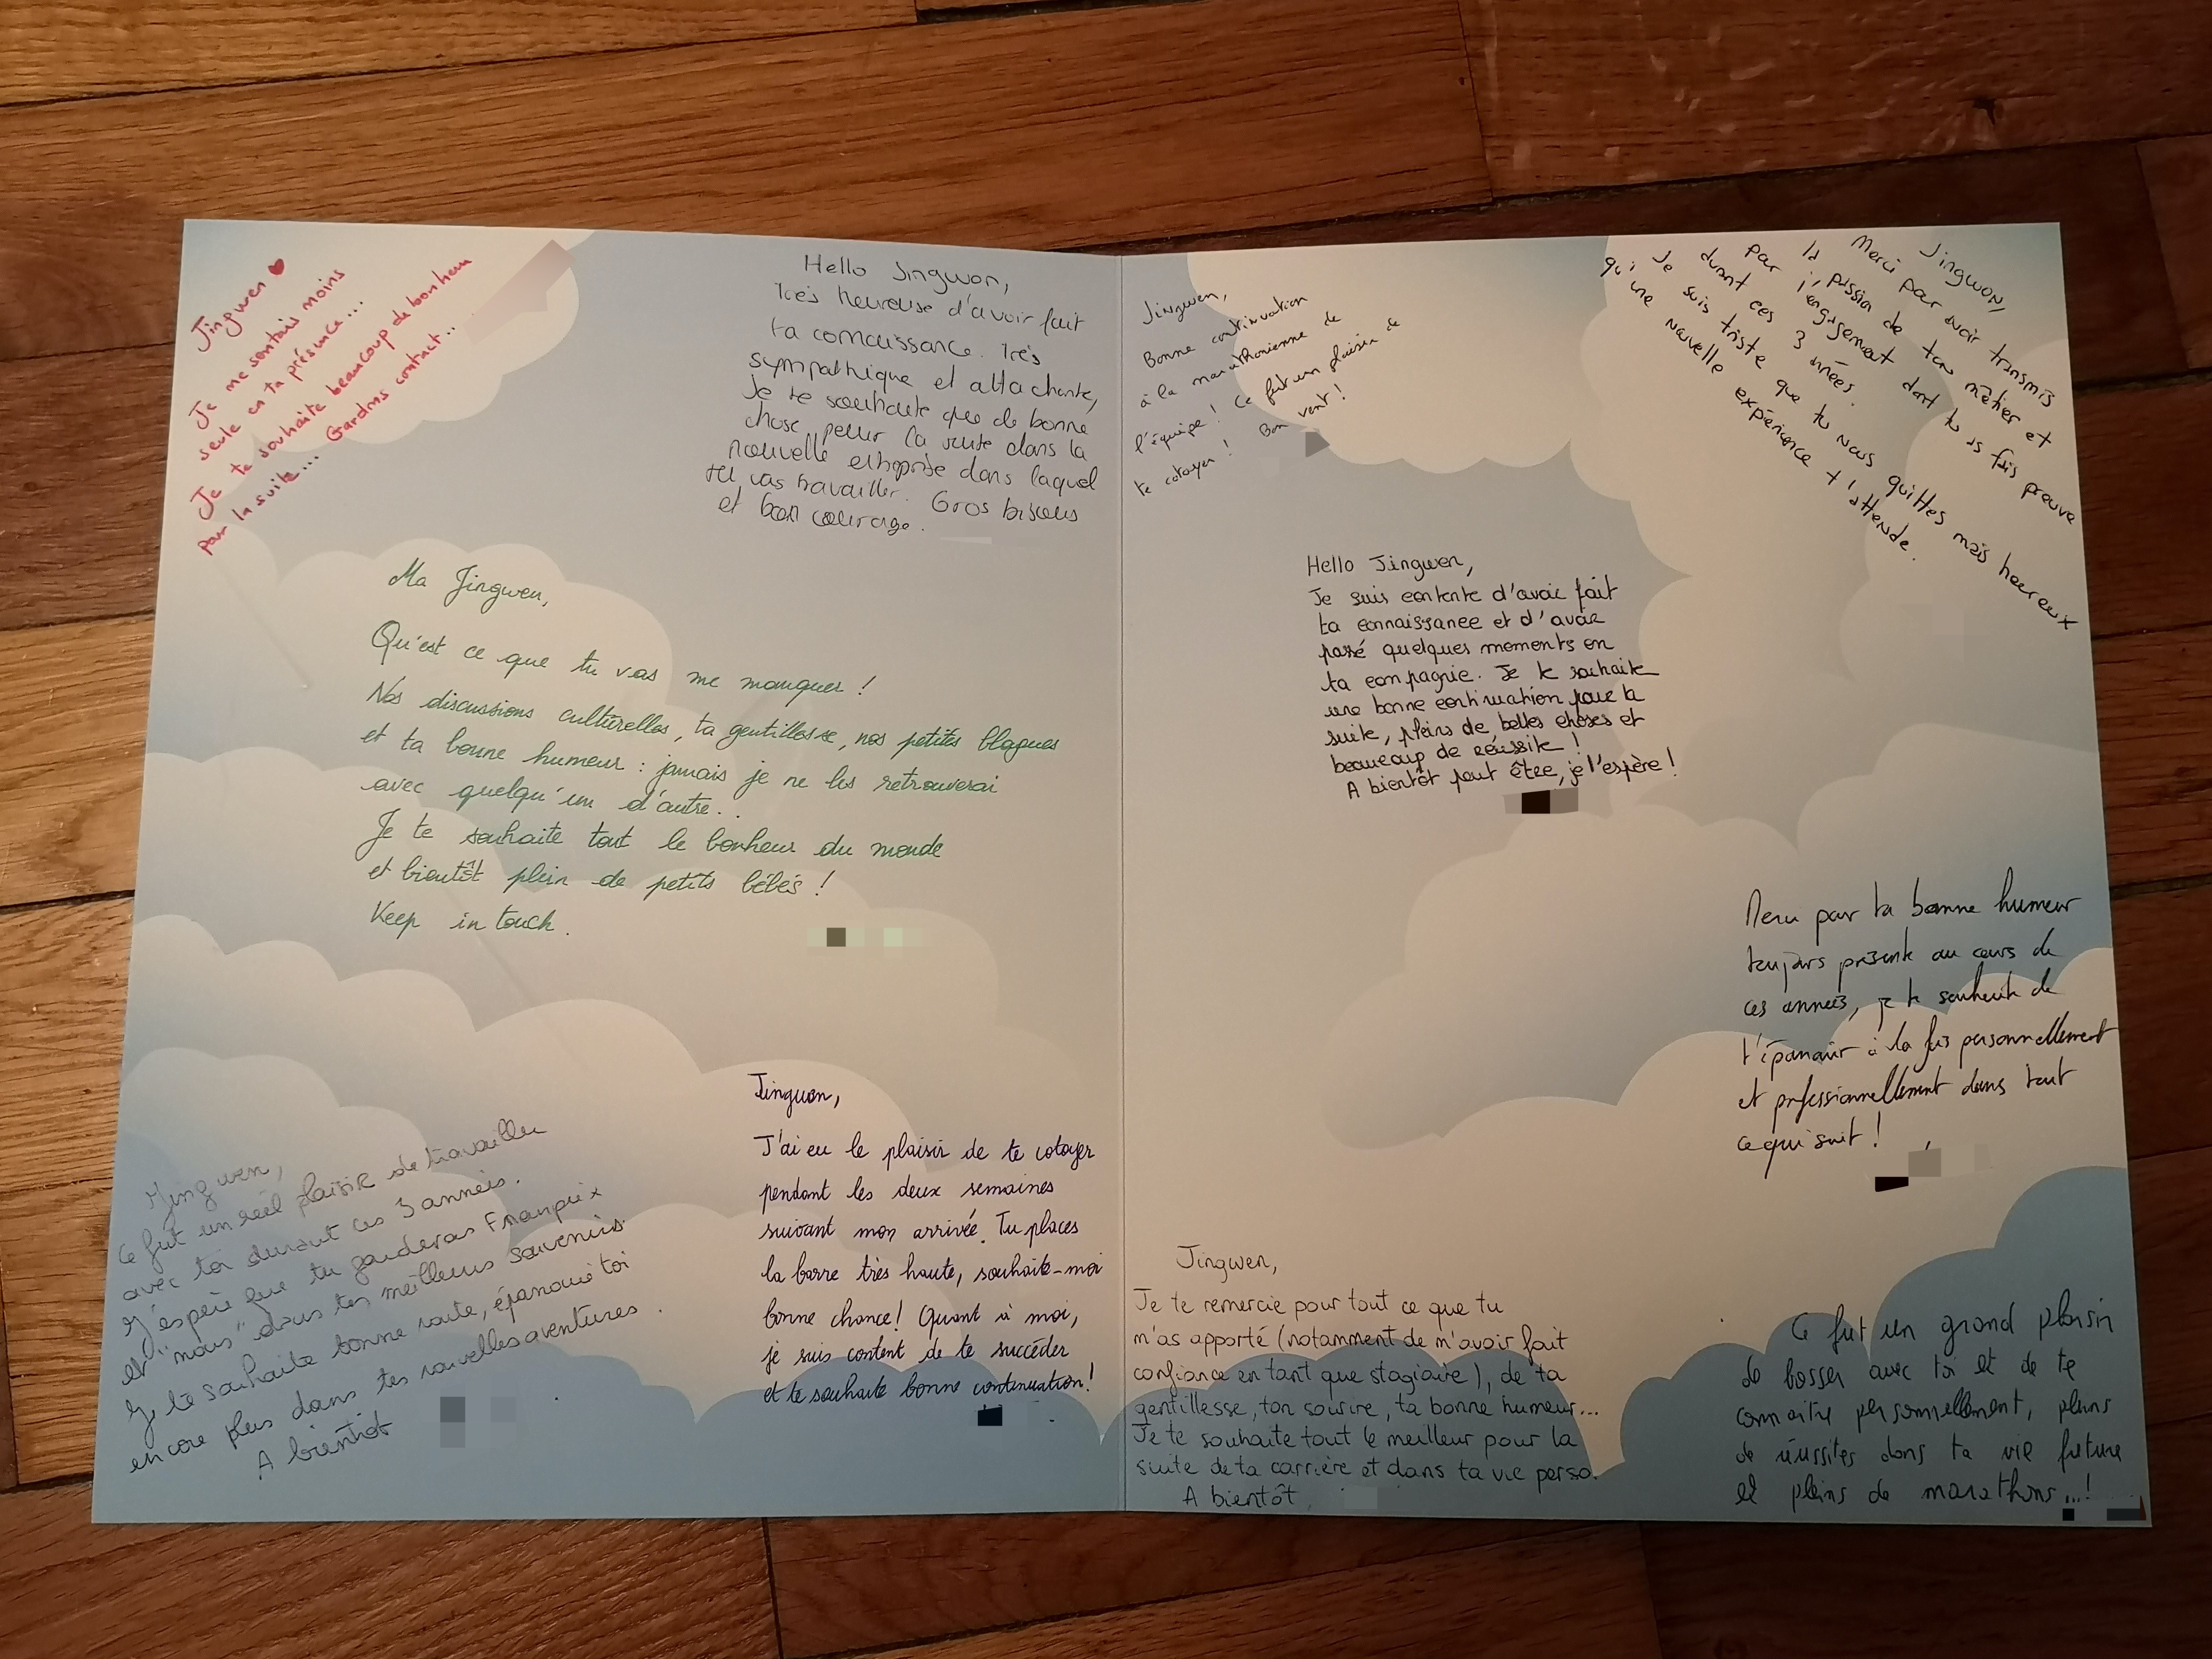 Jingwen ♥
Je me sentais moins
seule en ta présence...
Je te souhaite beaucoup de bonheur
pour la suite... Gardons contact..
Hello Jingwen,
Très heureuse d'avoir fait
ta connaissance. Très
sympathique et attachante,
Je te souhaite que de bonne
chose pour la suite dans la
nouvelle entreprise dans laquel
tu vas travailler. Gros bisous
et bon courage.
Ma Jingwen,
Qu'est ce que tu vas me manquer !
Nos discussions culturelles, ta gentillesse, nos petites blagues
et ta bonne humeur : jamais je ne les retrouverai
avec quelqu'un d'autre...
Je te souhaite tout le bonheur du monde
et bientôt plein de petits bébés !
Keep in touch.
Jingwen,
Ce fut un réel plaisir de travailler
avec toi durant ces 3 années.
J'espère que tu garderas Franprix
et "nous" dans tes meilleurs souvenirs
Je te souhaite bonne route, épanouie toi
encore plus dans tes nouvelles aventures.
A bientôt
Jingwen,
J'ai eu le plaisir de te cotoyer
pendant les deux semaines
suivant mon arrivée. Tu places
la barre très haute, souhaite-moi
bonne chance! Quant à moi,
je suis content de te succéder
et te souhaite bonne continuation!
Jingwen,
Bonne continuation
à la marathonienne de
l'équipe ! Ce fut un plaisir de
te cotoyer ! Bon vent !
Jingwen,
Merci par avoir transmis
la passion de ton métier et
par l'engagement dont tu as fais preuve
durant ces 3 années.
Je suis triste que tu nous quittes mais heureux
qu'une nouvelle expérience t'attende.
Hello Jingwen,
Je suis contente d'avoir fait
ta connaissance et d'avoir
passé quelques moments en
ta compagnie. Je te souhaite
une bonne continuation pour la
suite, pleins de belles choses et
beaucoup de réussite !
A bientôt peut être, je l'espère !
Merci pour ta bonne humeur
toujours présente au cours de
ces années, je te souhaite de
t'épanouir à la fois personnellement
et professionnellement dans tout
ce qui suit !
Jingwen,
Je te remercie pour tout ce que tu
m'as apporté (notamment de m'avoir fait
confiance en tant que stagiaire), de ta
gentillesse, ton sourire, ta bonne humeur...
Je te souhaite tout le meilleur pour la
suite de ta carrière et dans ta vie perso.
A bientôt
Ce fut un grand plaisir
de bosser avec toi et de te
connaitre personnellement, pleins
de réussites dans ta vie future
et pleins de marathons...!